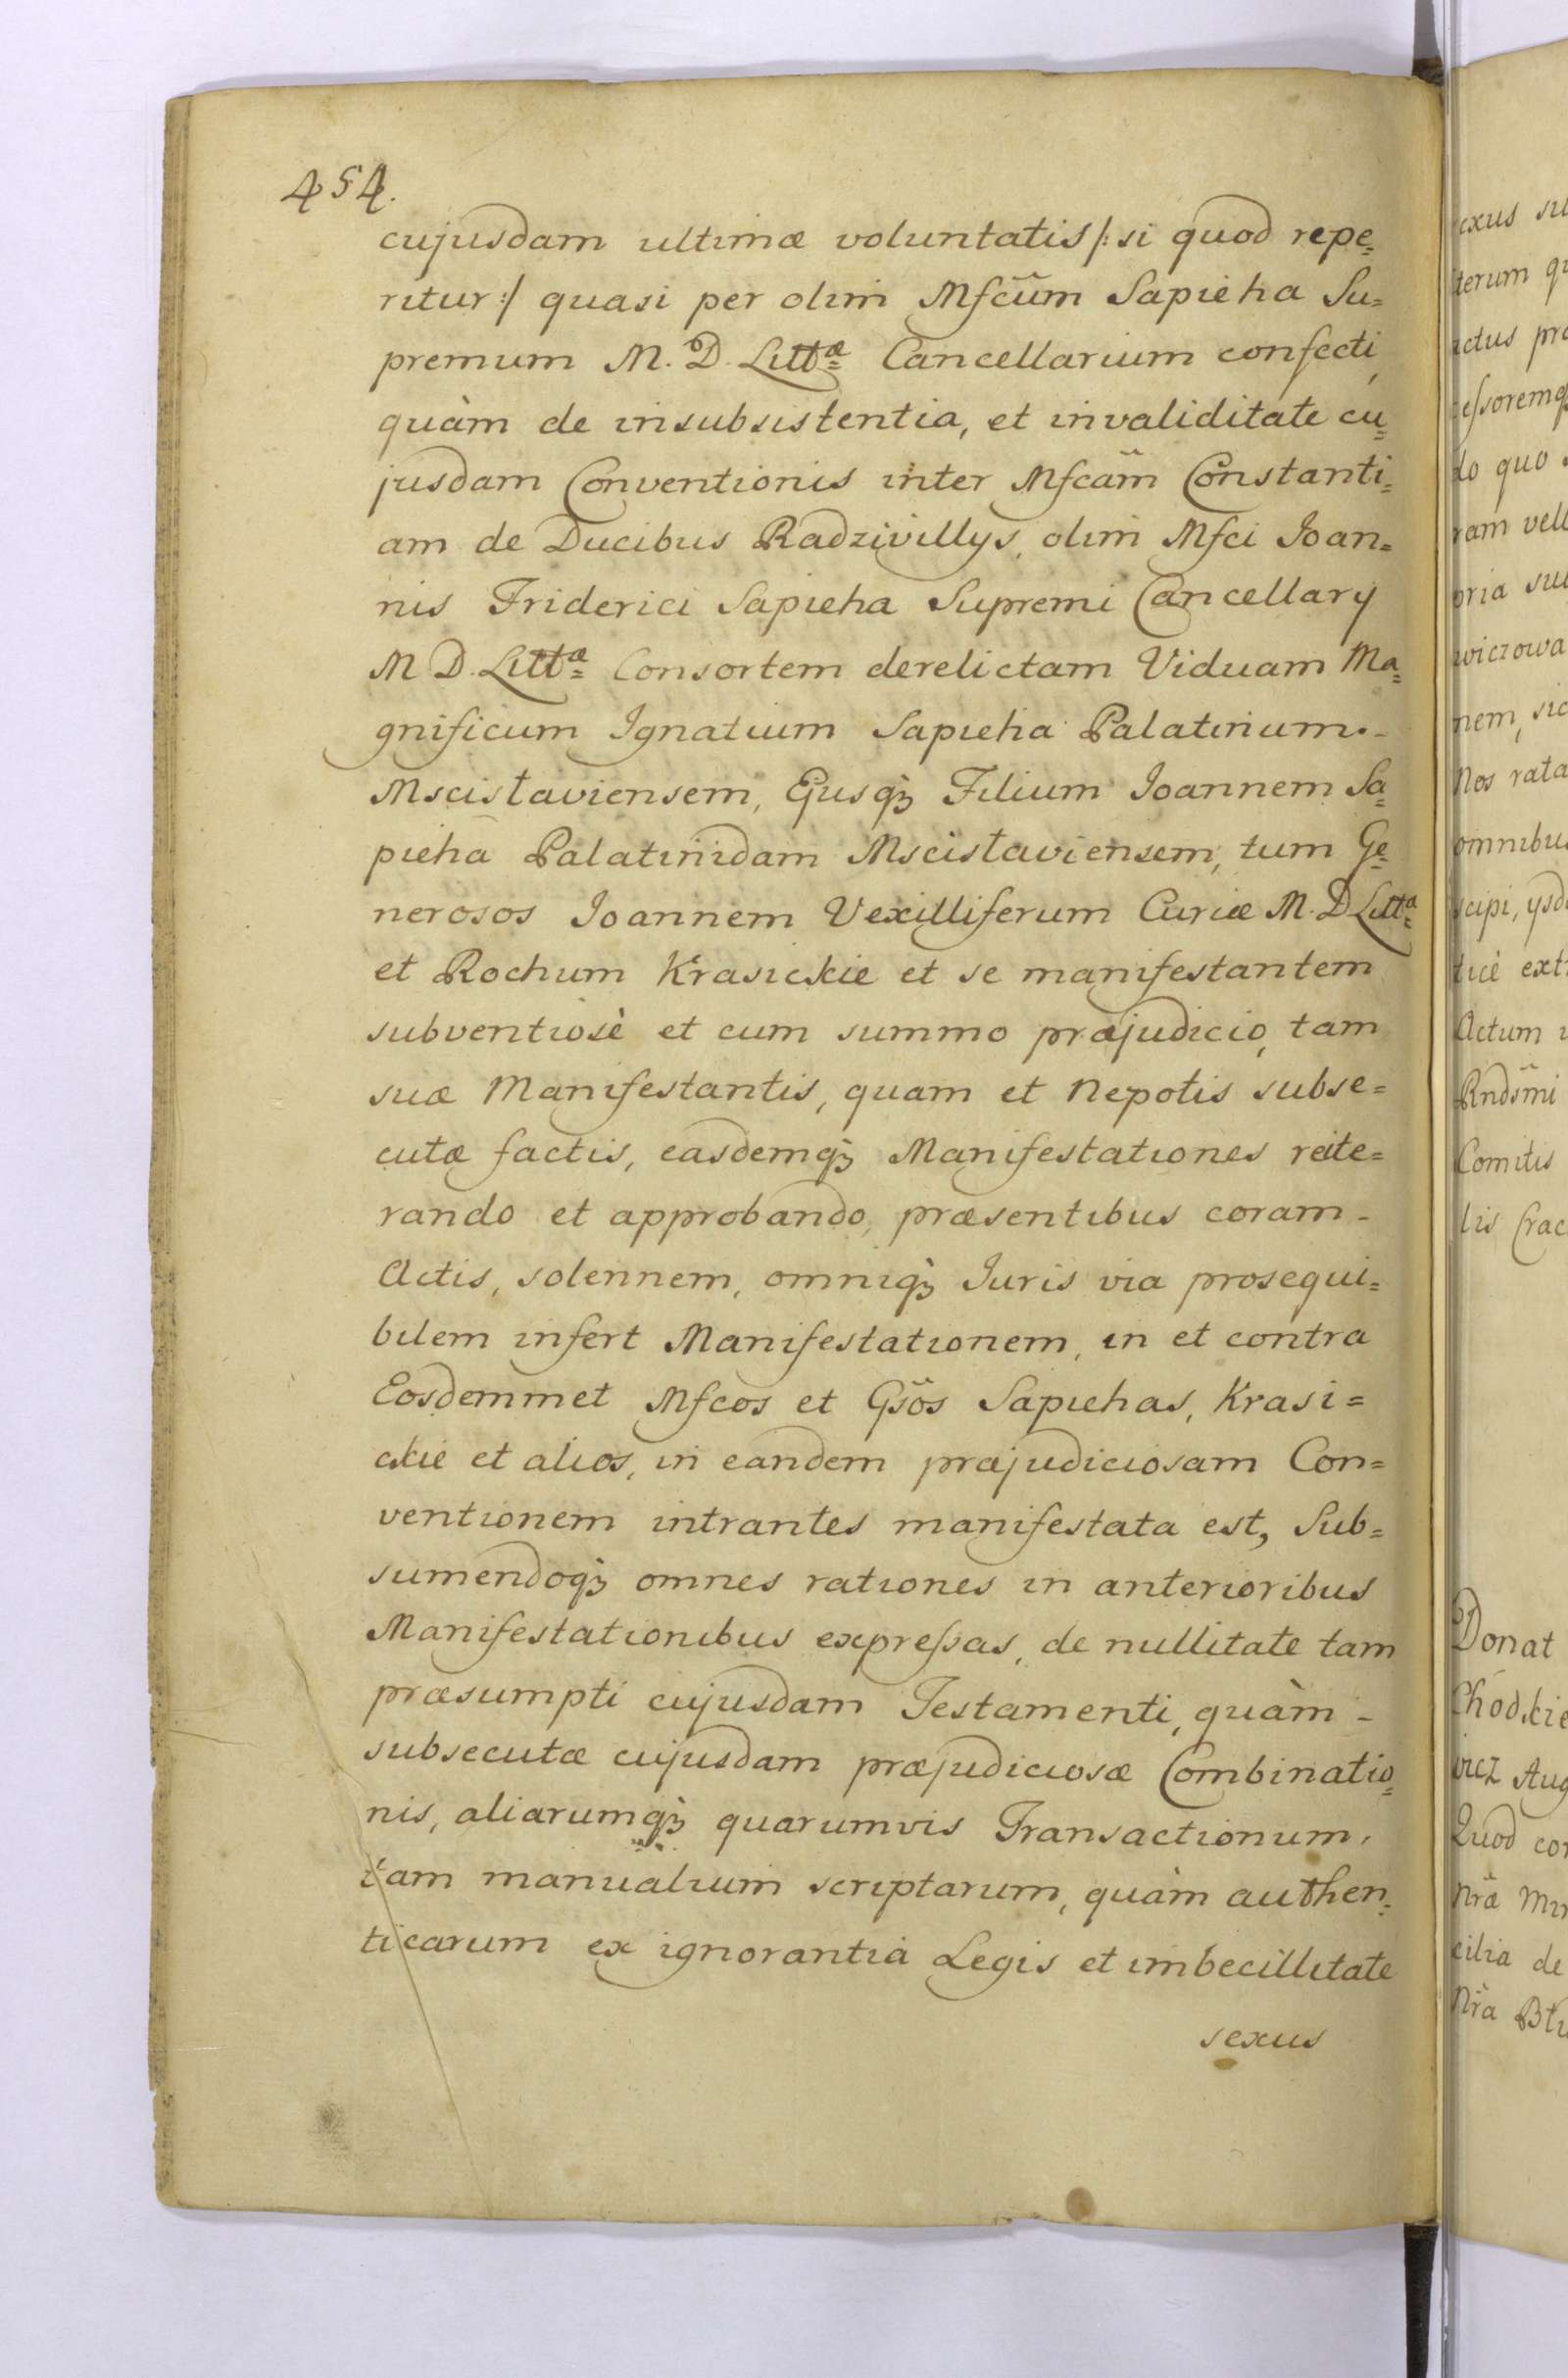 454.
cujusdam ultimæ voluntatis /: si quod repe=
ritur :/ quasi per olim Mfcum̃ Sapieha Su=
premum M. D. Littæ Cancellarium confecti,
quàm de insubsistentia, et invaliditate cu=
jusdam Conventionis inter Mfcam̃ Constanti=
am de Ducibus Radzivillÿs, olim Mfci Joan=
nis Friderici Sapieha Supremi Cancellarÿ
M D. Littæ Consortem derelictam Viduam Ma=
gnificum Ignatium Sapieha Palatinum -
Mscislaviensem, Ejusq3 Filium Joannem Sa=
pieha Palatinidam Mscislaviensem, tum Ge=
nerosos Joannem Vexilliferum Curiæ M. D Litta
et Rochum Krasickie et se manifestantem
subventiosè et cum summo præjudicio, tam
suæ Manifestantis, quam et Nepotis subse=
cutæ factis, easdemq3 Manifestationes reite=
rando et approbando, præsentibus coram -
Actis, solennem, omniq3 Juris via prosequi=
bilem infert Manifestationem, in et contra
Eosdemmet Mfcos et Gsõs Sapiehas, Krasi=
ckie et alios, in eandem præjudiciosam Con=
ventionem intrantes manifestata est, Sub=
sumendoq3 omnes rationes in anterioribus
Manifestationibus expressas, de nullitate tam
præsumpti cujusdam Testamenti, quàm -
subsecutæ cujusdam præjudiciosæ Combinatio=
nis, aliarumq3 quarumvis Transactionum,
tam manualium scriptarum, quàm authen=
ticarum ex ignorantia Legis et imbecillitate
sexus
exus
terum
ictus
do quo
ram
oria
wiczowa
nem,
Nos rata
omnibus
scipi,
Actum
Rndsm̃i
Comitis
lis
Donat
Chodkie
wicz Aug
Quod
Nrã
cilia de
Nrã